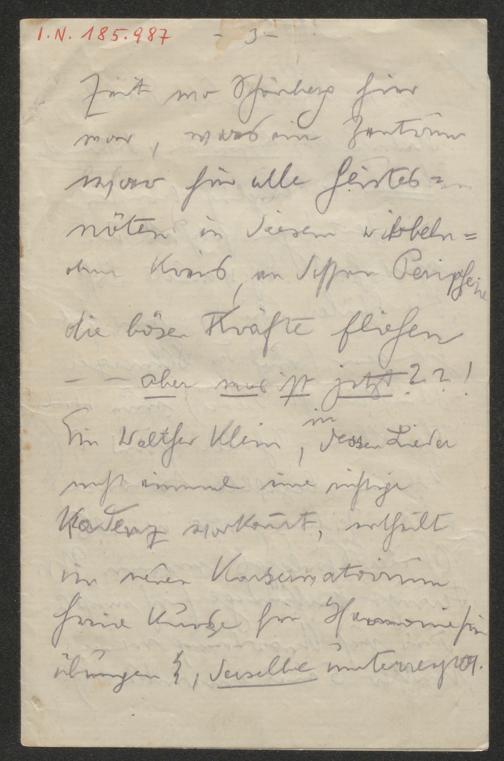 I.N. 185.987
- 3 -
Zeit wo Schönberg hier
war, war ein Zentrum
für alle Geistes=
nöten in diesem wibbeln=
den Kreis, an dessen Periphe
die bösen Kräfte fliehen
– – aber was ist jetzt??!
Ein Walther Klein, in dessen Lieder
nicht einmal eine richtige
Kadenz vorkommt, erhält
im neuen Konservatorium
freie Kurse für Harmonie
übungen, derselbe